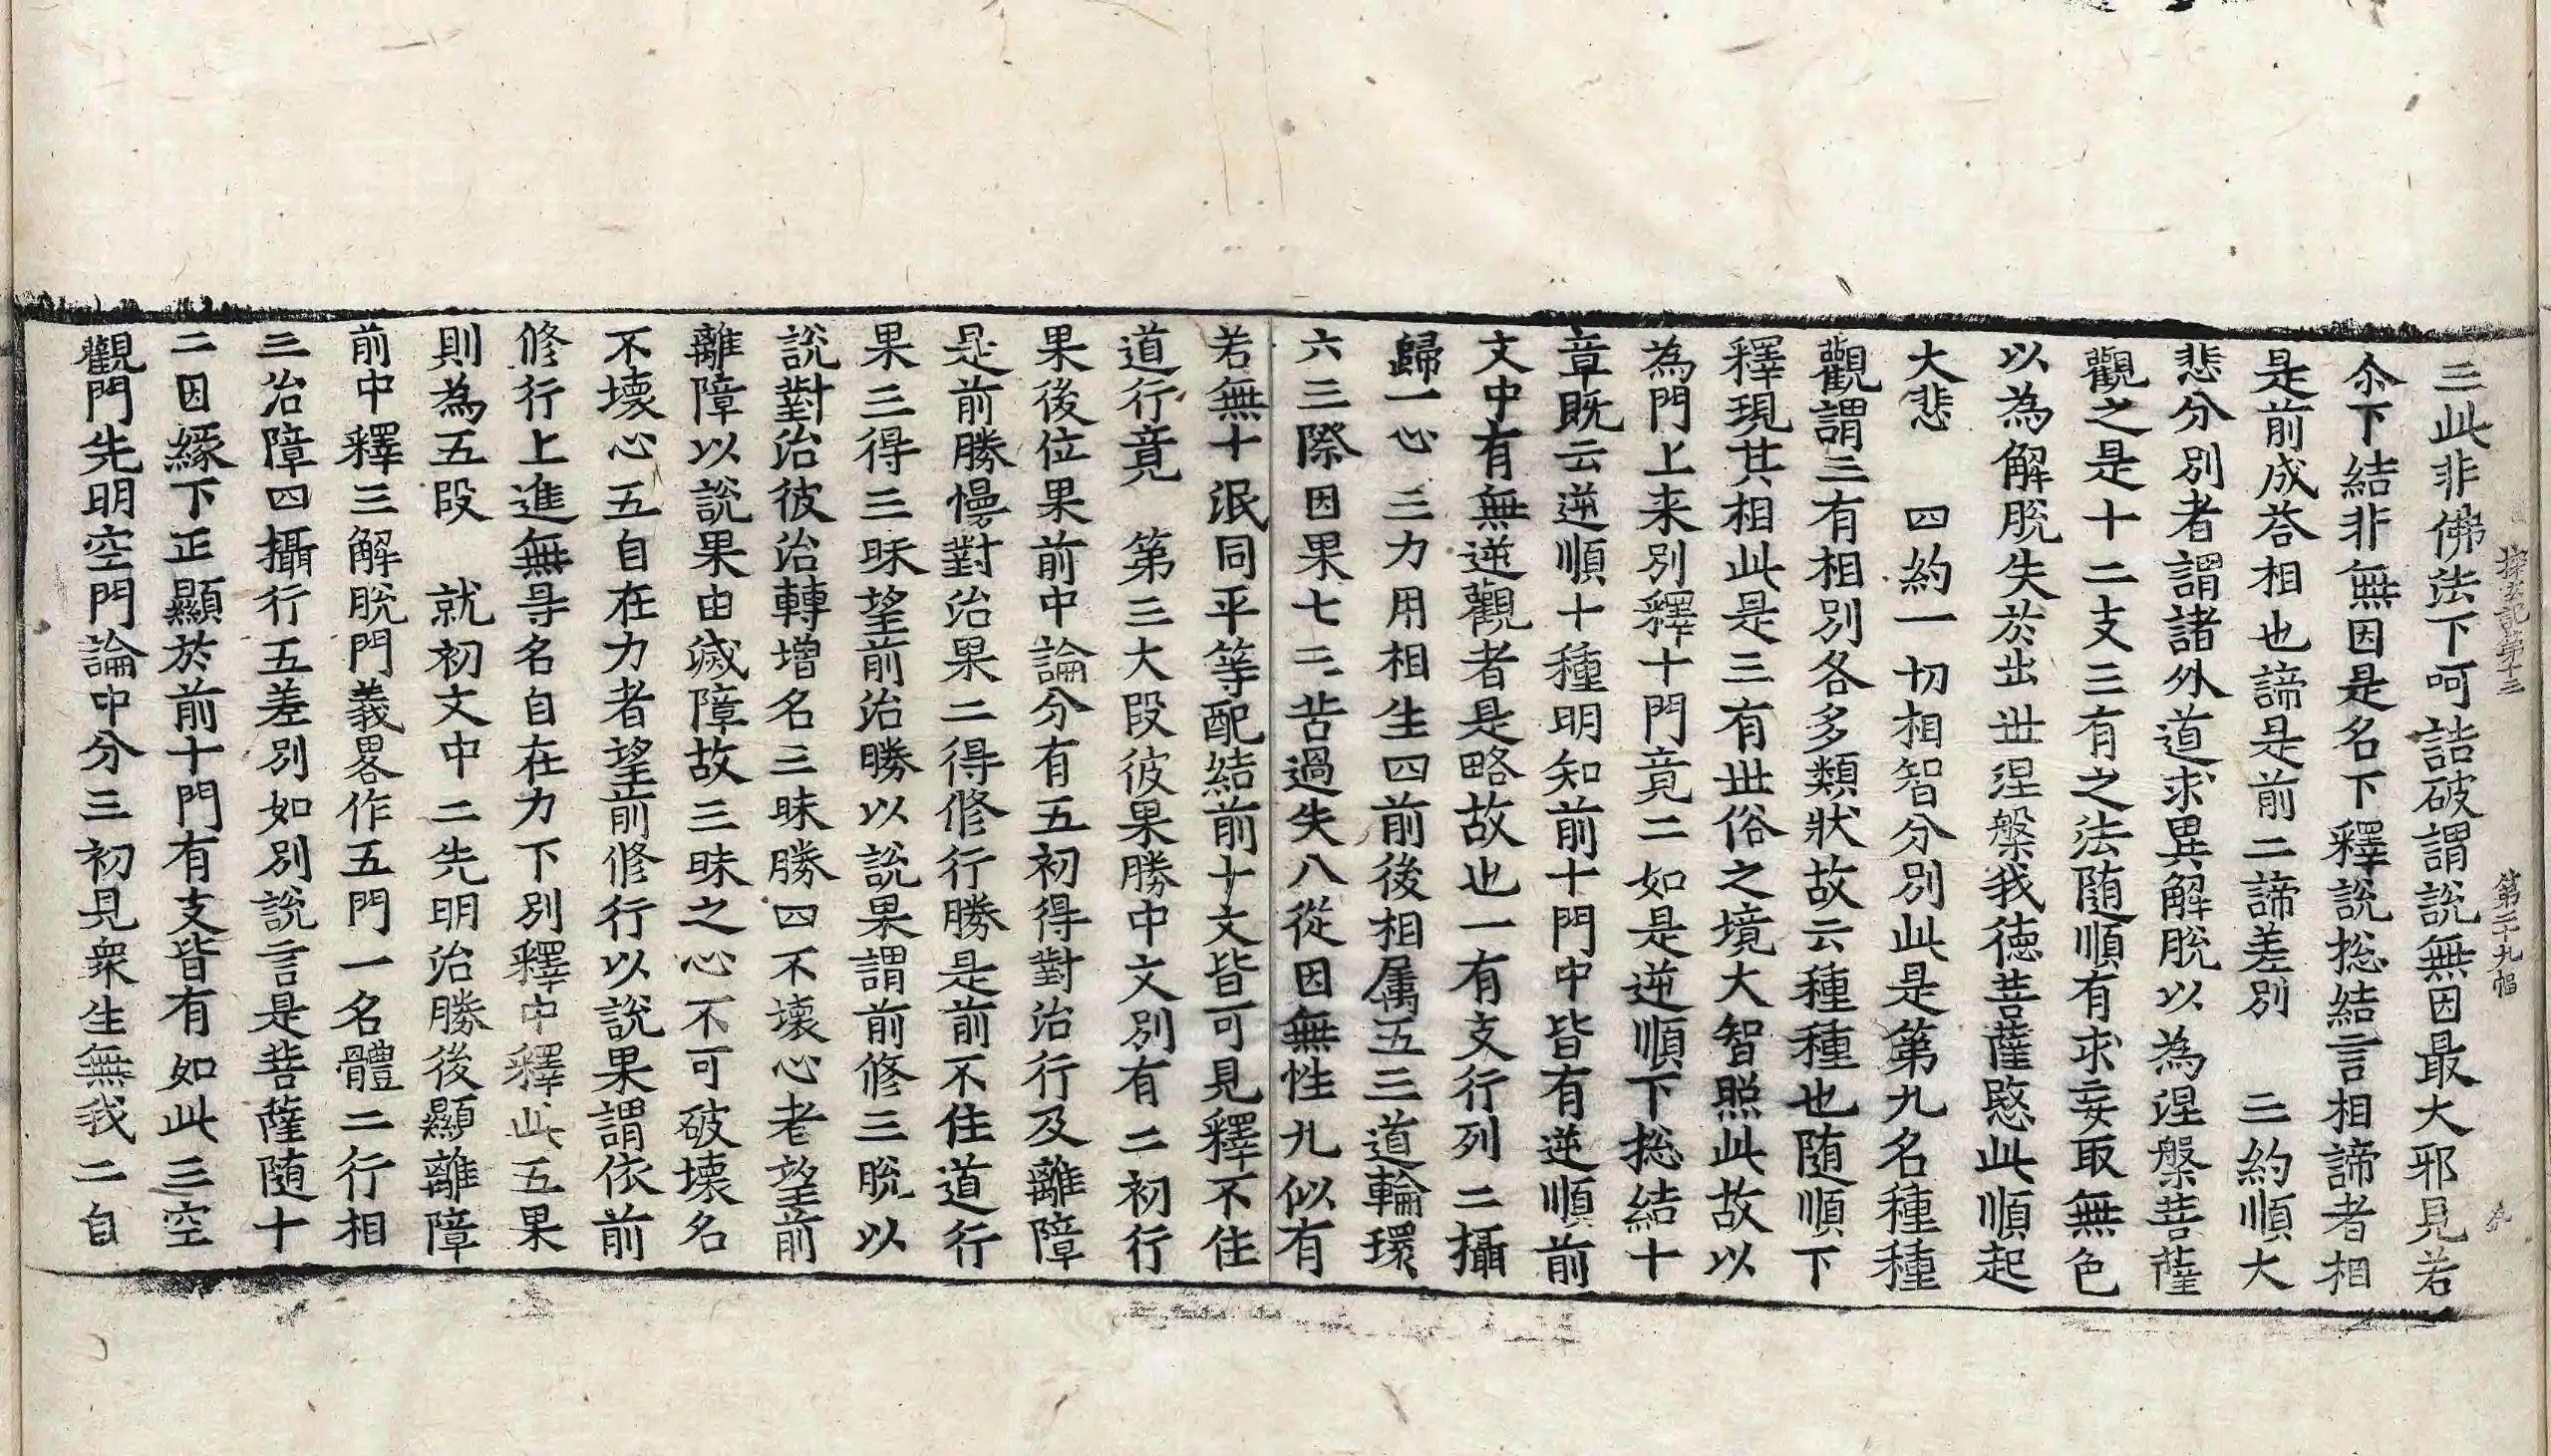 探玄記第十三 第二十九幅
三此非佛法下呵詰破謂說無因最大邪見若
尒下結非無因是名下釋說捴結言相諦者相
是前成荅相也諦是前二諦差別 二約順大
悲分別者謂諸外道求異解脫以為涅槃菩薩
觀之是十二支三有之法随順有求妄取無色
以為解脫失於出世涅槃我德菩薩愍此順起
大悲 四約一切相智分別此是第九名種種
觀謂三有相別各多類狀故云種種也随順下
釋現其相此是三有世俗之境大智照此故以
為門上来別釋十門竟二如是逆順下捴結十
章既云逆順十種明知前十門中皆有逆順前
文中有無逆觀者是略故也一有支行列二攝
歸一心三力用相生四前後相属五三道輪環
六三際因果七三苦過失八從因無性九似有
若無十泯同平等配結前十文皆可見釋不住
道行竟 第三大段彼果勝中文別有二初行
果後位果前中論分有五初得對治行及離障
是前勝慢對治果二得修行勝是前不住道行
果三得三昧望前治勝以說果謂前修三脫以
說對治彼治轉增名三昧勝四不壞心者望前
離障以說果由滅障故三昧之心不可破壞名
不壞心五自在力者望前修行以說果謂依前
修行上進無㝵名自在力下別釋中釋此五果
則為五段 就初文中二先明治勝後顯離障
前中釋三解脫門義畧作五門一名體二行相
三治障四攝行五差別如別說言是菩薩随十
二因緣下正顯於前十門有支皆有如此三空
觀門先明空門論中分三初見衆生無我二自